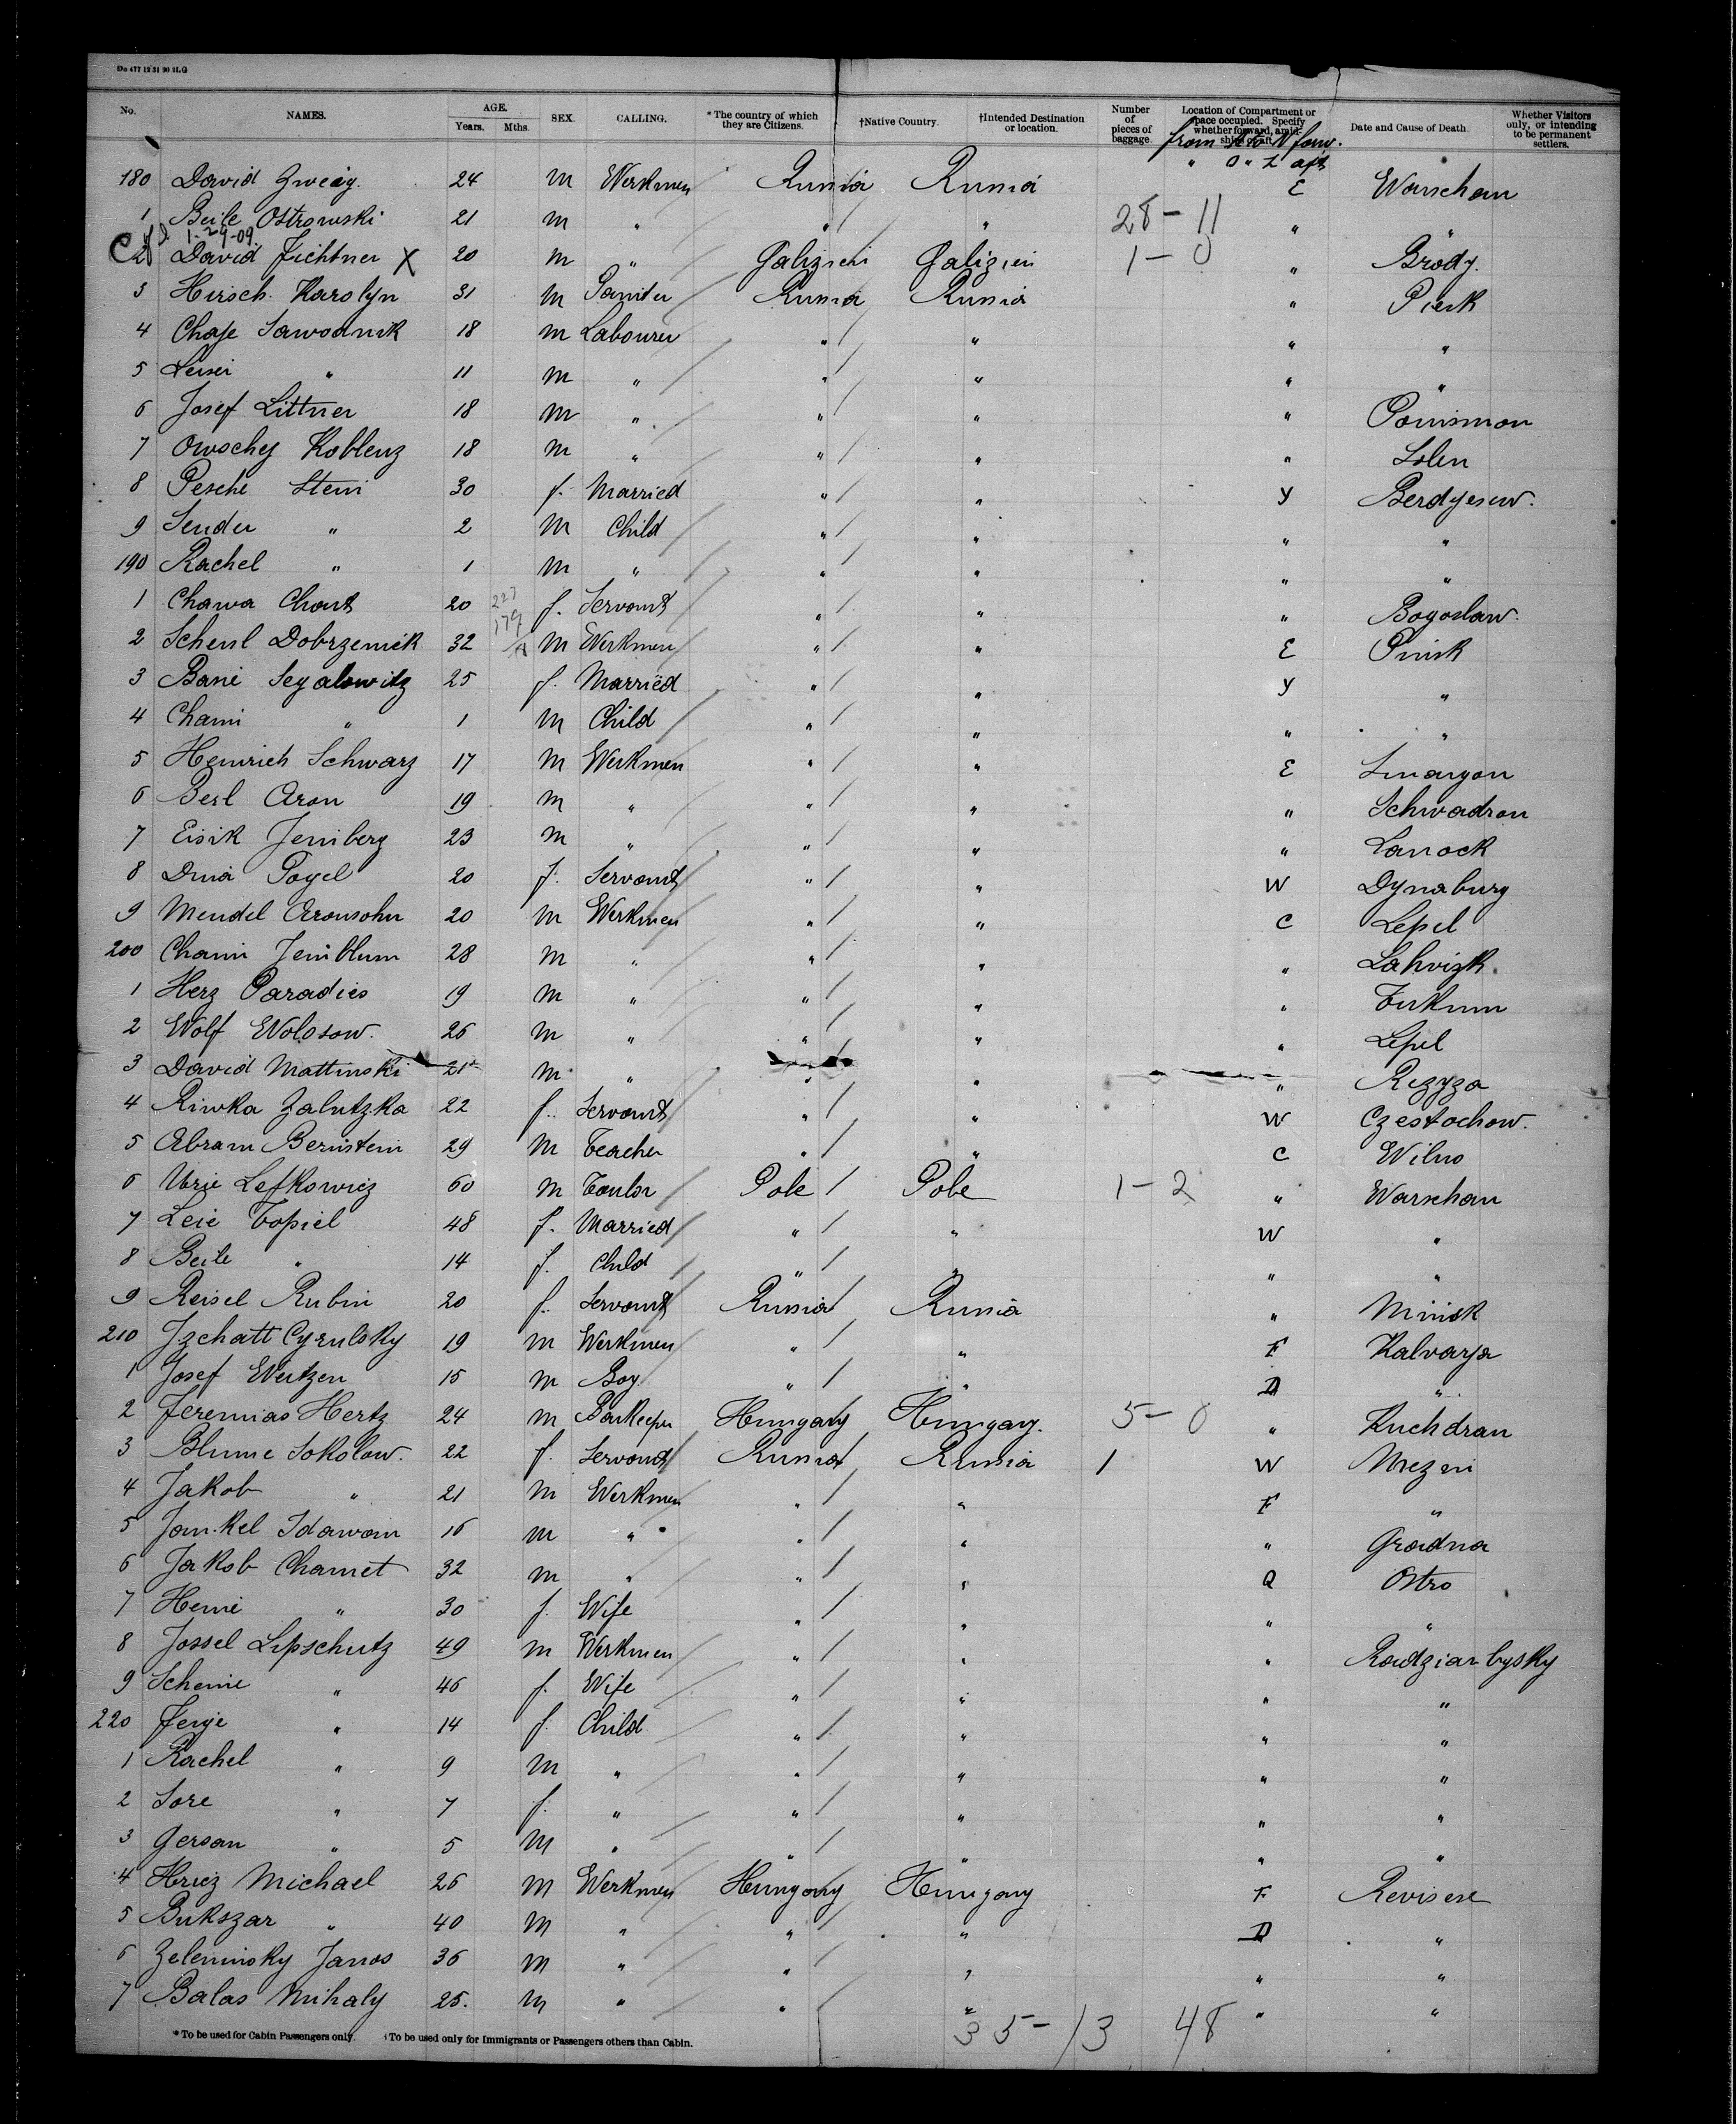 Do 477 12 31 90 1LG
No. NAMES. AGE. Years. Mths. SEX. CALLING. *The country of which they are Citizens. †Native Country. †Intended Destination or location. Number of pieces of baggage Location of Compartment or space occupied. Specify whether forward, amidships or aft. Date and Cause of Death Whether Visitors only, or intending to be permanent settlers.
from A to N forw.
" O " Z aft
180 David Zweig. 24 M Workmen Russia Russia E Warschau
1 Beile Ostrowski 21 M " " " 28-11 " "
1-29-09
2 David Fichtner X 20 M " Galizien Galizien 1-0 " Brody.
3 Hirsch Karolyn 31 M Painter Russia Russia " Pinsk
4 Chaje Sawodnik 18 M Labourer " " " "
5 Leiser " 11 M " " " " "
6 Josef Littner 18 M " " " "
7 Owschey Koblenz 18 M " " " " Solen
8 Pesche Stein 30 f. Married " " Y
9 Sender " 2 M Child " " " "
190 Rachel " 1 M " " " " "
1 Chawa 20 f. Servant " " " Bogoslaw.
2 Schenl Dobrzenick 32 M Workmen " " E Pinsk
3 Bani Segalowitz 25 f. Married " " Y "
4 Chaim " 1 M Child " " " "
5 Heinrich Schwarz 17 M Workmen " " E Smargon
6 Berl Aron 19 M " " " " Schwadron
7 Eisik 23 M " " " " Sanock
8 Dina Pogel 20 f. Servant " " W Dynaburg
9 Mendel Aronsohn 20 M Workmen " " C Lepel
200 Chaim 28 M " " " "
1 Herz Paradies 19 M " " " " Tukkum
2 Wolf Wolosow. 26 M " " " " Lepel
3 David Mattinski 21 M " " " " Rezyza
4 Riwka Zalutzka 22 f. Servant " " W Czestochow.
5 Abram Bernstein 29 M Teacher " " C Wilno
6 Urie Lefkowicz 60 M Tailor Pole Pole 1-2 " Warschau
7 Leie Topiel 48 f. Married " " W "
8 Beile " 14 f. Child " " " "
9 Reisel Rubin 20 f. Servant Russia Russia " Minsk
210 Jzchatt Cyrulsky 19 M Workmen " " F Kalvarja
1 Josef Wertzen 15 M Boy " " D "
2 Jeremias Hertz 24 M Barkeeper Hungary Hungary. 5-0 " Kuchdran
3 Blume Sokolow. 22 f. Servant Russia Russia 1 W
4 Jakob " 21 M Workmen " " F "
5 Jankel 16 M " " " " Grodna
6 Jakob Chamet 32 M " " " Q Ostro
7 Henie " 30 f. Wife " " " "
8 Jossel Lipschutz 49 M Workmen " " "
9 Scheine " 46 f. Wife " " " "
220 Feige " 14 f. Child " " " "
1 Rachel " 9 M " " " " "
2 Sore " 7 f. " " " " "
3 Gerson " 5 M " " " " "
4 Hricz Michael 26 M Workmen Hungary Hungary F Revisere
5 Bukszar " 40 M " " " D "
6 Zeleninsky Janos 36 M " " " " "
7 Balas Mihaly 25. M " " " " "
35-13 48
*To be used for Cabin Passengers only. †To be used only for Immigrants or Passengers others than Cabin.